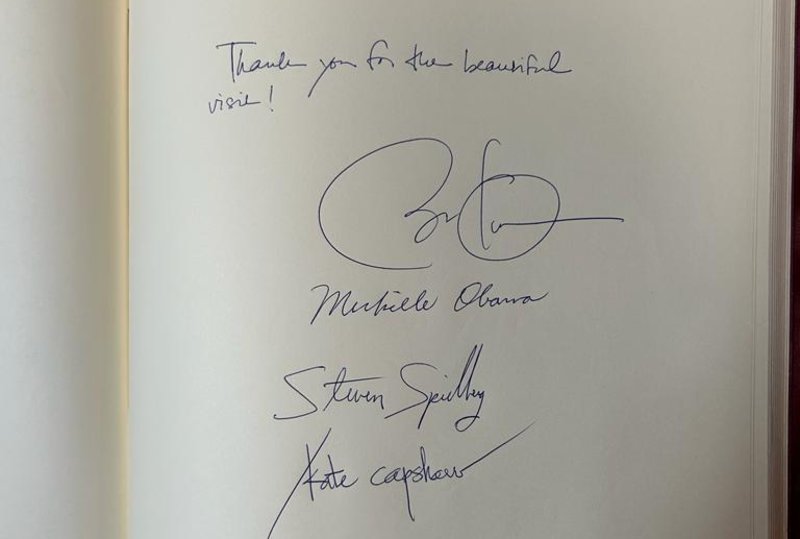 Thank you for the beautiful
visit!
Michelle Obama
Steven Spielberg
Kate Capshaw